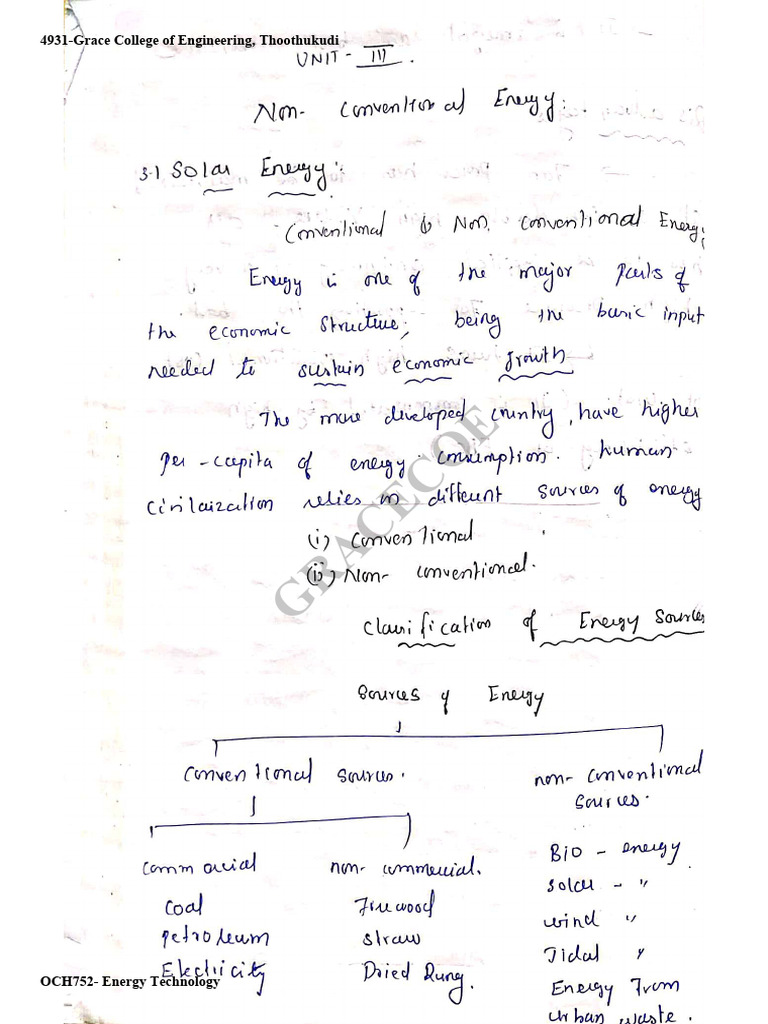 4931-Grace College of Engineering, Thoothukudi
UNIT - III.
Non- Conventional Energy:.
3.1 Solar Energy:
Conventional & Non. Conventional Energy
Energy is one of the major parts of
the economic structure, being the basic input
needed to sustain economic growth
The more developed country, have higher
per-capita of energy consumption. human
civilaization relies on different sources of energy
(i) Conventional
(ii) Non- conventional.
Classification of Energy Sources
Sources of Energy
Conventional sources.
non-conventional
sources.
commercial non-commercial. Bio - energy
Coal Firewood solar - "
petroleum straw wind "
Electricity Dried Dung. Tidal "
Energy From
urban waste.
OCH752- Energy Technology
GRACECOE